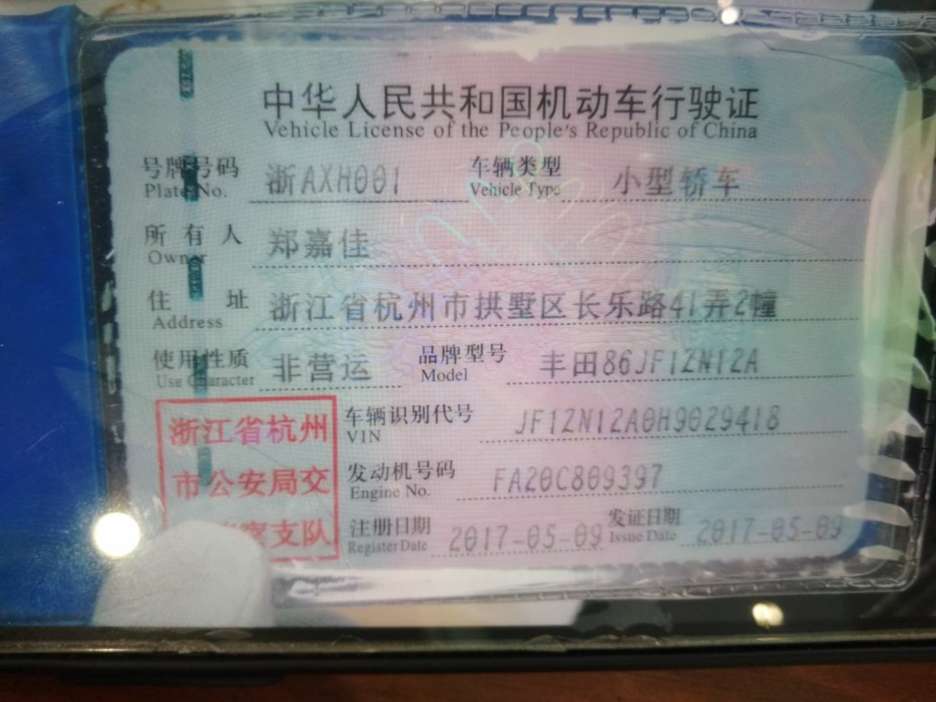 中华人民共和国机动车行驶证
Vehicle License of the People's Republic of China
号牌号码 浙AXH001 车辆类型 小型轿车
Plate No. Vehicle Type
所有人 郑嘉佳
Owner
住址 浙江省杭州市拱墅区长乐路41弄2幢
Address
使用性质 非营运 品牌型号 丰田86JF1ZN12A
Use Character Model
浙江省杭州 车辆识别代号 JF1ZN12A0H9029418
VIN
市公安局交 发动机号码 FA20C809397
Engine No.
察支队 注册日期 2017-05-09 发证日期 2017-05-09
Register Date Issue Date